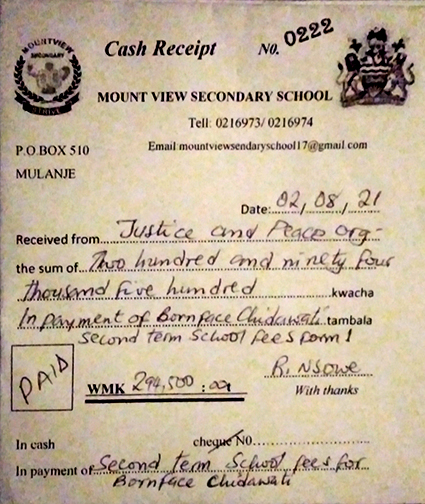 MOUNTVIEW
SECONDARY
STRIVE
Cash Receipt NO. 0222
MOUNT VIEW SECONDARY SCHOOL
Tell: 0216973/ 0216974
P.O.BOX 510 Email:mountviewsendaryschool17@gmail.com
MULANJE
Date: 02, 08, 21
Received from Justice and Peace org-
the sum of Two hundred and ninety four
thousand five hundred kwacha
In payment of Bornface Chidawati tambala
Second term School fees form 1
PAID
WMK 294,500 : 00
R. NSowe
With thanks
In cash cheque N0.
In payment of Second term School fees for
Bornface Chidawati